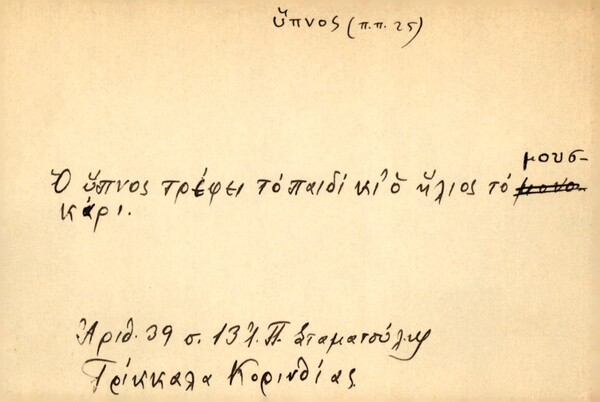 ὕπνος (π.π. 25)
Ὁ ὕπνος τρέφει τὸ παιδὶ κι' ὁ ἥλιος τὸ μουσ-
κάρι.
Ἀριθ. 39 σ. 131. Π. Σταματούλη
Τρίκκαλα Κορινθίας